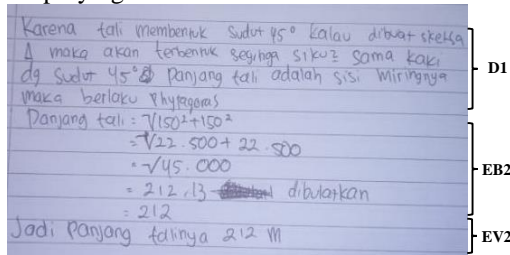 Karena tali membentuk sudut 45° kalau dibuat sketsa
Δ maka akan terbentuk segitiga siku2 sama kaki
dg sudut 45° panjang tali adalah sisi miringnya
maka berlaku Phytagoras
D1
Panjang tali = √150²+150²
= √22.500 + 22.500
= √45.000
= 212,13 dibulatkan
= 212
EB2
Jadi panjang talinya 212 m
EV2